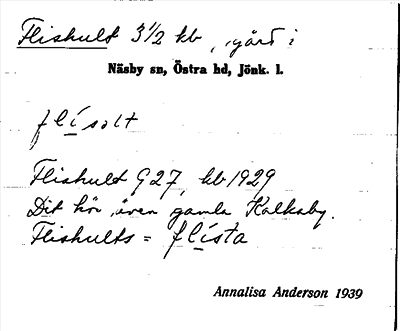 Flishult 3 1/2 kb, gård i
Näsby sn, Östra hd, Jönk. l.
flisolt
Flishult G27, kb 1929
Dit hör även gamla Kalkaby.
Flishults = flista
Annalisa Anderson 1939